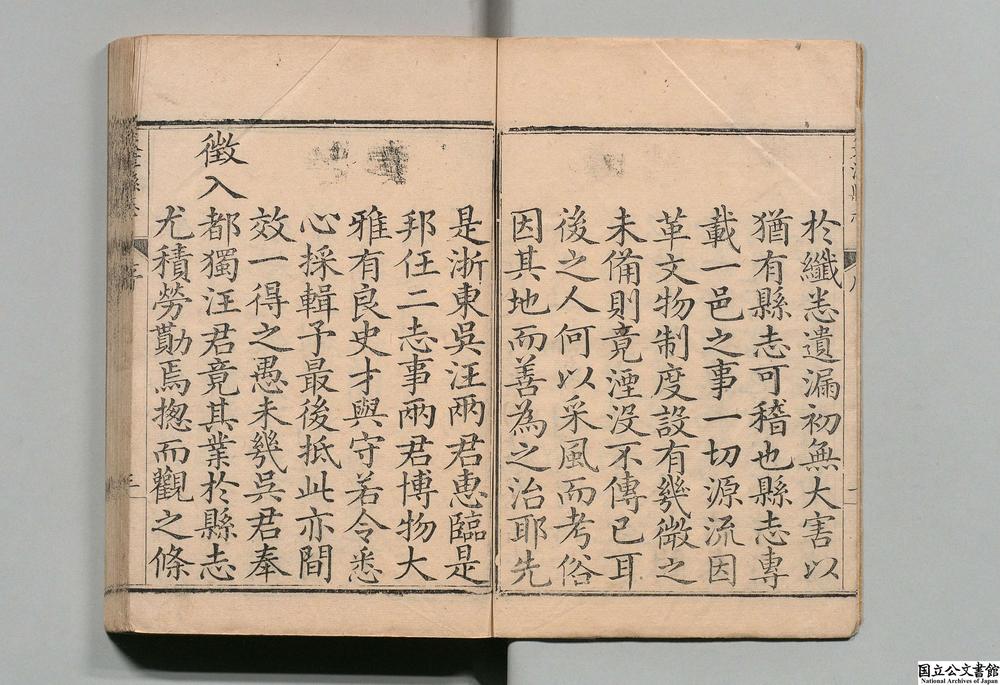 於纖恙遺漏初無大害以
猶有縣志可稽也縣志專
載一邑之事一切源流因
革文物制度設有幾微之
未俻則竟湮没不傳已耳
後之人何以采風而考俗
因其地而善為之治耶先
是浙東吳汪兩君惠臨是
邦任二志事兩君博物大
雅有良史才與守若令悉
心採輯予最後抵此亦間
效一得之愚未幾吳君奉
徵入
都獨汪君竟其業於縣志
尤積勞勩焉揔而觀之條
国立公文書館
National Archives of Japan